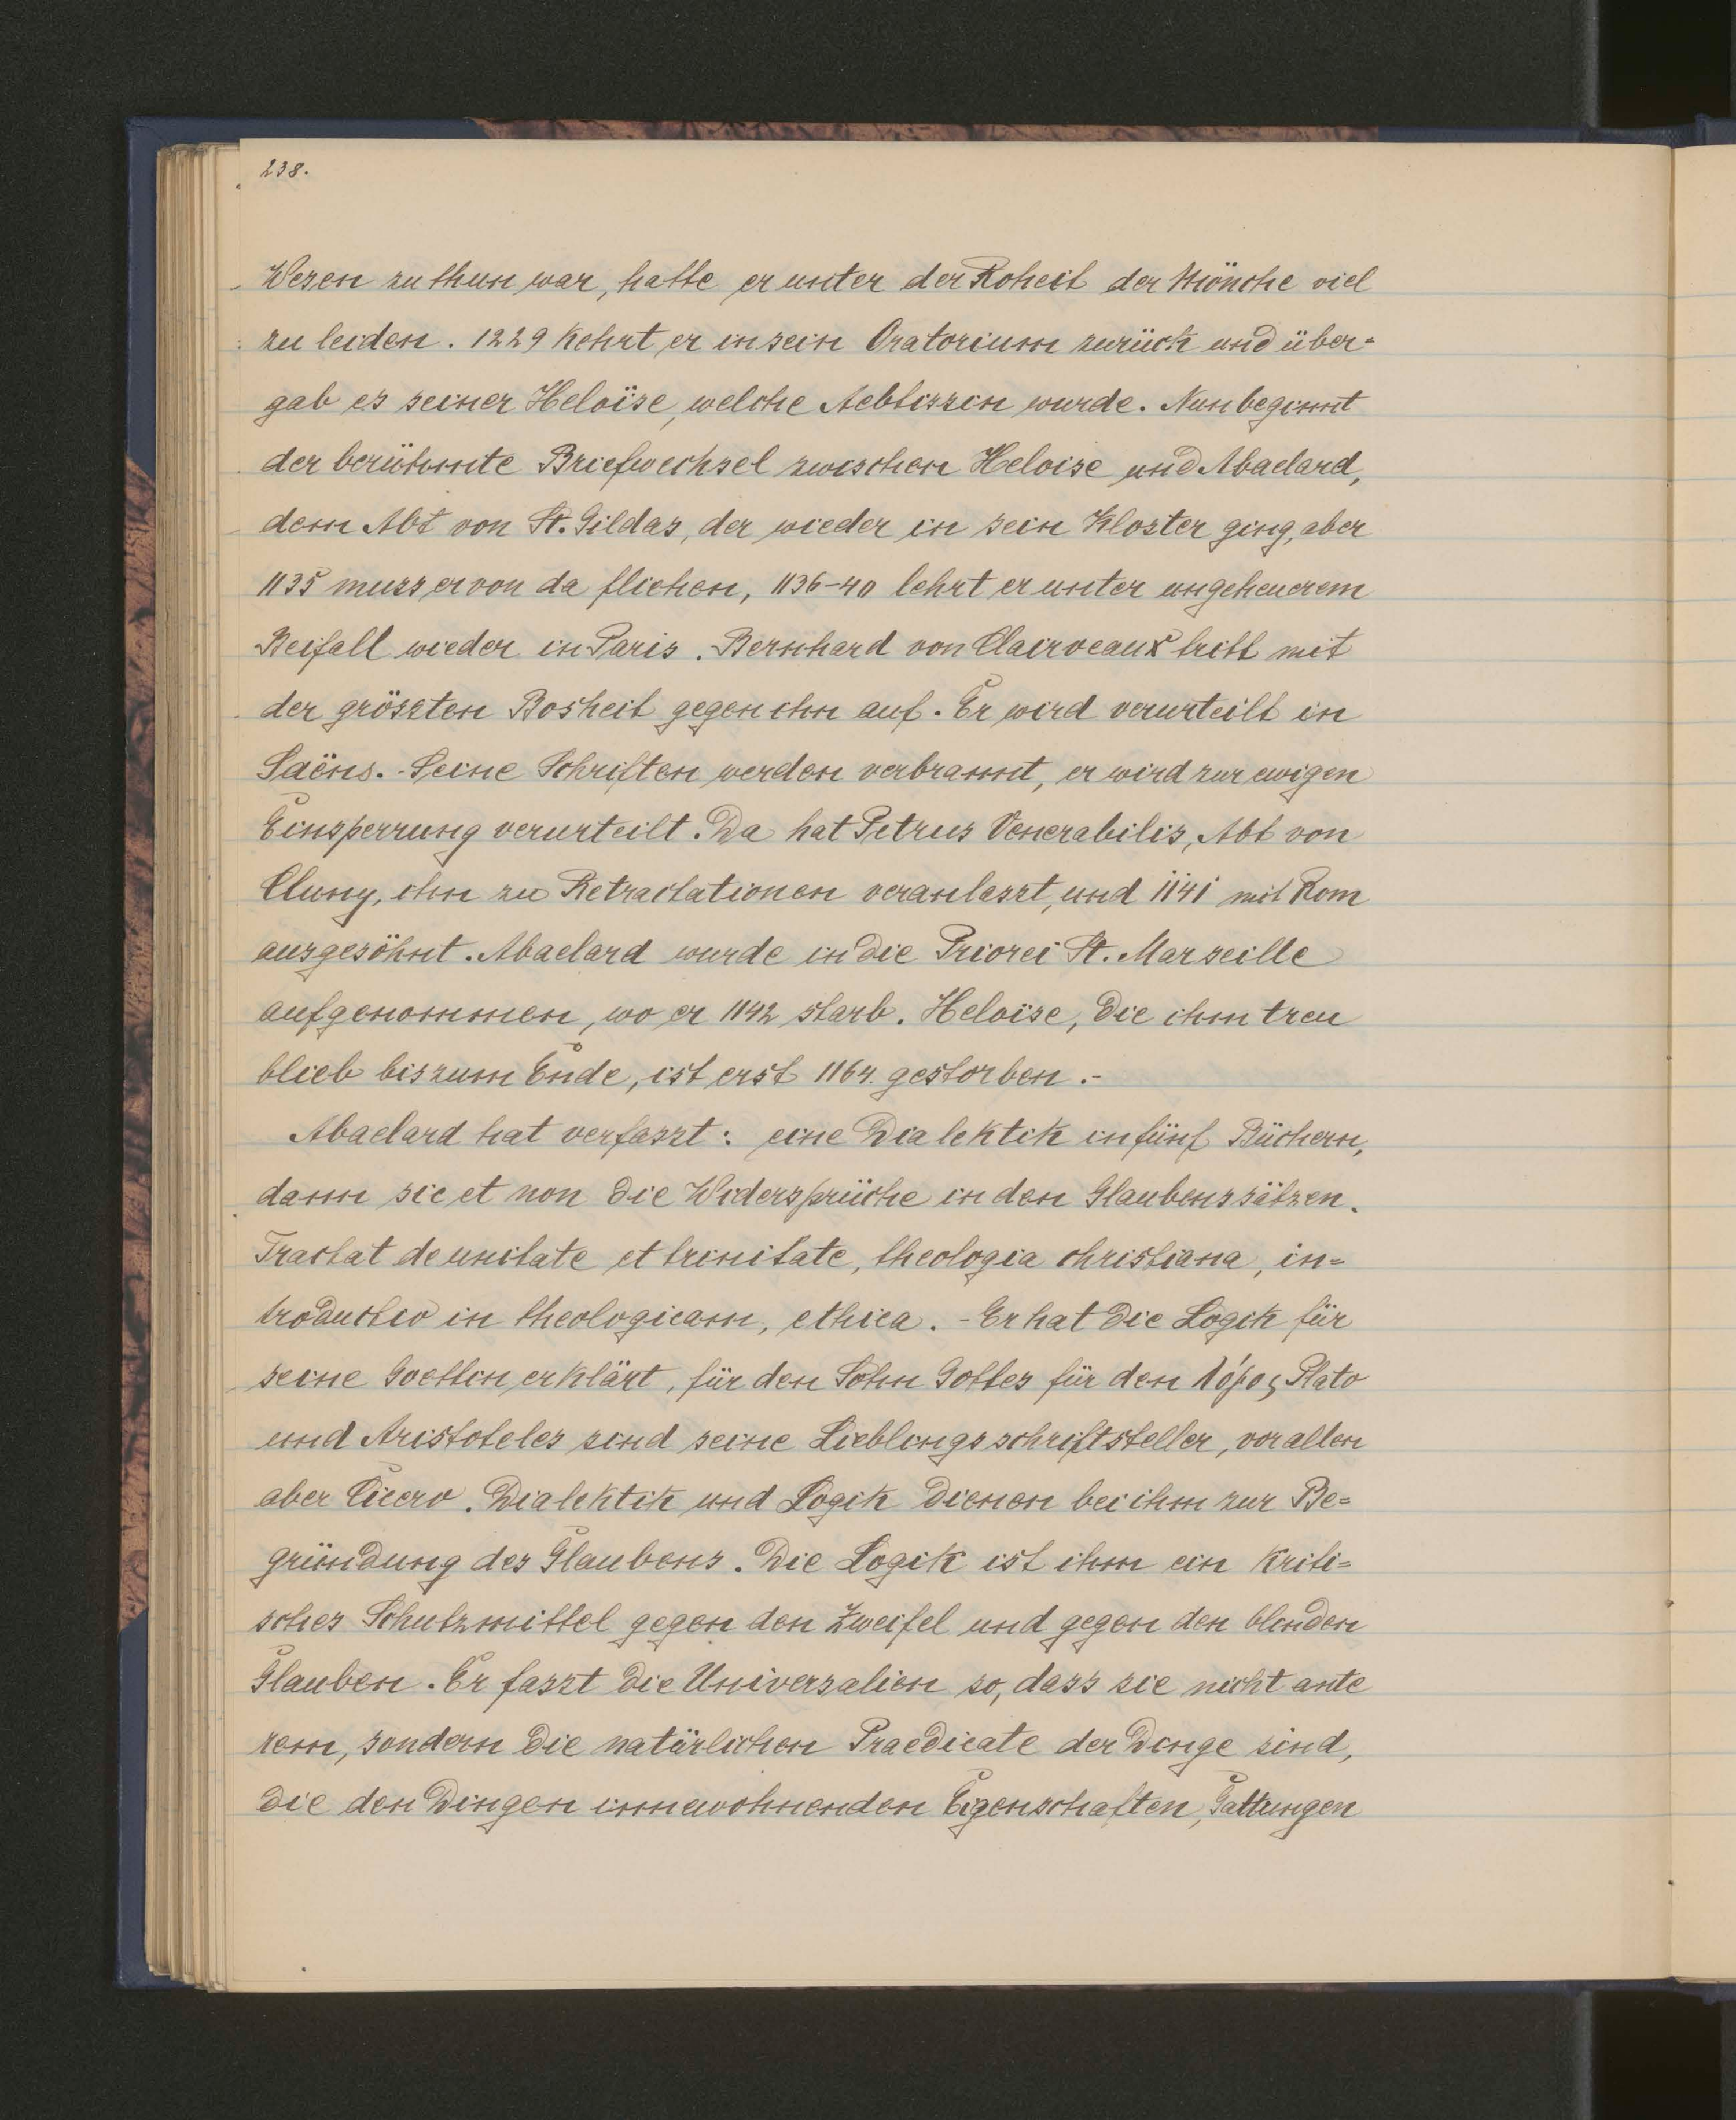 238.
Wesen zu thun war, hatte er unter der Roheit der Mönche viel
zu leiden. 1229 kehrt er in sein Oratorium zurück und über=
gab es seiner Heloïse, welche Aebtissin wurde. Nun beginnt
der berühmte Briefwechsel zwischen Heloise und Abaelard,
dem Abt von St. Gildas, der wieder in sein Kloster ging, aber
1135 muss er von da fliehen, 1136-40 lehrt er unter ungeheuerem
Beifall wieder in Paris. Bernhard von Clairveaux tritt mit
der grössten Bosheit gegen ihn auf. Er wird verurteilt in
Saëns. - Seine Schriften werden verbrannt, er wird zur ewigen
Einsperrung verurteilt. Da hat Petrus Venerabilis, Abt von
Cluny, ihn zu Retractationen veranlasst, und 1141 mit Rom
ausgesöhnt. Abaelard wurde in die Priorei St. Marseille
aufgenommen, wo er 1142 starb. Heloïse, die ihm treu
blieb bis zum Ende, ist erst 1164. gestorben. -
Abaelard hat verfasst: eine Dialektik in fünf Büchern,
dann sic et non die Widersprüche in den Glaubenssätzen.
Tractat de unitate et trinitate, theologia christiana, in=
troductio in theologicam, ethica. - Er hat die Logik für
seine Goettin erklärt, für den Sohn Gottes für den λόγος Plato
und Aristoteles sind seine Lieblingsschriftsteller, vor allen
aber Cicero. Dialektik und Logik dienen bei ihm zur Be=
gründung des Glaubens. Die Logik ist ihm ein kriti=
sches Schutzmittel gegen den Zweifel und gegen den blinden
Glauben. Er fasst die Universalien so, dass sie nicht ante
rem, sondern die natürlichen Praedicate der Dinge sind,
die den Dingen innewohnenden Eigenschaften, Gattungen